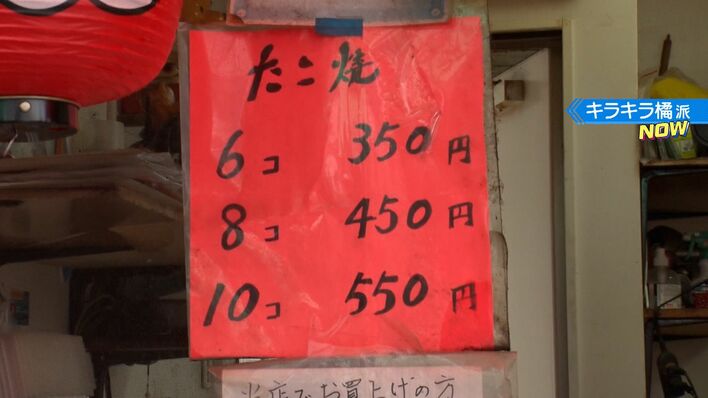 たこ焼
6コ 350円
8コ 450円
10コ 550円
当店でお買上げの方
キラキラ橘派
NOW